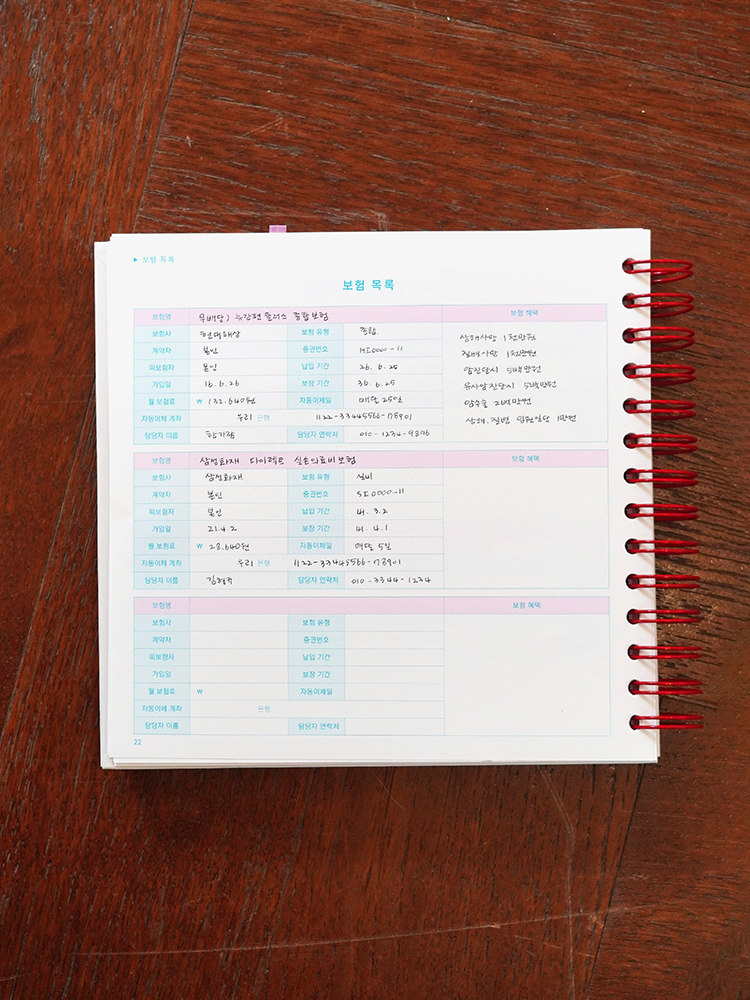 ▶ 보험 목록
보험 목록
보험명 무배당 뉴간편플러스 종합보험 보험 혜택
보험사 현대해상 보험 유형 종합
계약자 본인 증권번호 HI0000-11
피보험자 본인 납입 기간 26. 6. 25
가입일 16. 6. 26 보장 기간 36. 6. 25
월 보험료 ₩ 132,640원 자동이체일 매달 25일
자동이체 계좌 우리 은행 1122-33445566-778901
담당자 이름 담당자 연락처 010-1234-9876
상해사망 1천만원
질병사망 1천만원
암진단시 5백만원
유사암진단시 5백만원
암수술 2백만원
상해, 질병 입원일당 1만원
보험명 삼성화재 다이렉트 실손의료비보험 보험 혜택
보험사 삼성화재 보험 유형 실비
계약자 본인 증권번호 SI0000-11
피보험자 본인 납입 기간 41. 3. 2
가입일 21. 4. 2 보장 기간 41. 4. 1
월 보험료 ₩ 28,640원 자동이체일 매달 5일
자동이체 계좌 우리 은행 1122-33445566-778901
담당자 이름 담당자 연락처 010-3344-1234
보험명 보험 혜택
보험사 보험 유형
계약자 증권번호
피보험자 납입 기간
가입일 보장 기간
월 보험료 ₩ 자동이체일
자동이체 계좌 은행
담당자 이름 담당자 연락처
22